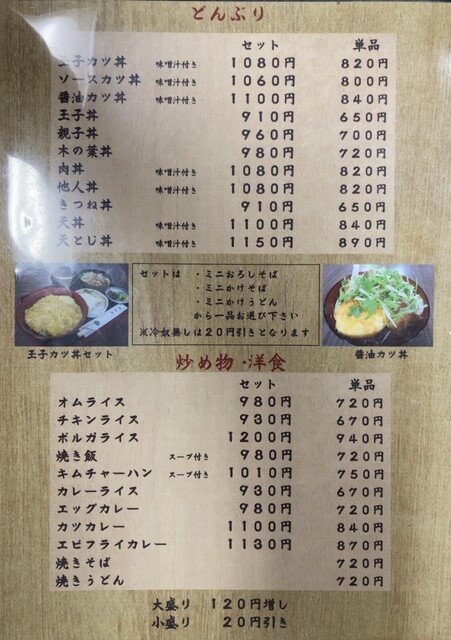 どんぶり
セット 単品
玉子カツ丼 味噌汁付き 1080円 820円
ソースカツ丼 味噌汁付き 1060円 800円
醤油カツ丼 味噌汁付き 1100円 840円
玉子丼 910円 650円
親子丼 960円 700円
木の葉丼 980円 720円
肉丼 味噌汁付き 1080円 820円
他人丼 味噌汁付き 1080円 820円
きつね丼 910円 650円
天丼 味噌汁付き 1100円 840円
天とじ丼 味噌汁付き 1150円 890円
セットは ・ミニおろしそば
・ミニかけそば
・ミニかけうどん
から一品お選び下さい
※冷奴無しは20円引きとなります
玉子カツ丼セット
醤油カツ丼
炒め物・洋食
セット 単品
オムライス 980円 720円
チキンライス 930円 670円
ボルガライス 1200円 940円
焼き飯 スープ付き 980円 720円
キムチャーハン スープ付き 1010円 750円
カレーライス 930円 670円
エッグカレー 980円 720円
カツカレー 1100円 840円
エビフライカレー 1130円 870円
焼きそば 720円
焼きうどん 720円
大盛り 120円増し
小盛り 20円引き